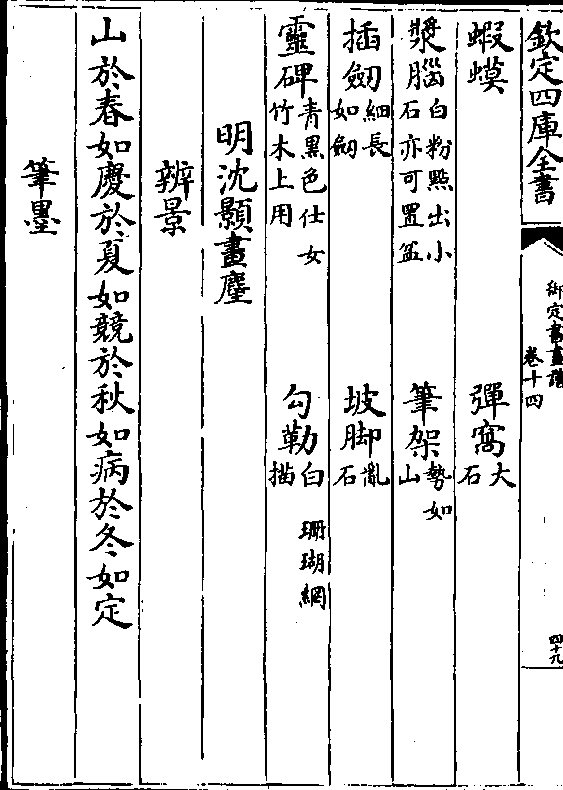 欽定四庫全書
御定書畫譜
卷十四
四十九
蝦蟆 彈窩大石
漿腦白粉點出小石亦可置盆 筆架勢如山
插劒細長如劒 坡脚亂石
靈碑青黑色仕女竹木上用 勾勒白描 珊瑚網
明沈顥畫麈
辨景
山於春如慶於夏如競於秋如病於冬如定
筆墨